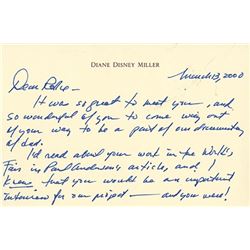 DIANE DISNEY MILLER
March 13, 2000
Dear
It was so great to meet you, and
so wonderful of you to come way out
of your way to be a part of our documentary
of dad.
I'd read about your work in the World's
Fair in Paul Anderson's articles, and I
knew that you would be an important
interview for our project — and you were!